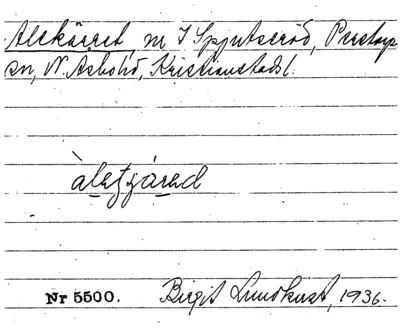 Alekärret, m I Spjutseröd, Perstorp
sn, N. Åsbohd, Kristianstads l.
àlețꞩárəd
Nr 5500. Birgit Lundkvist, 1936.